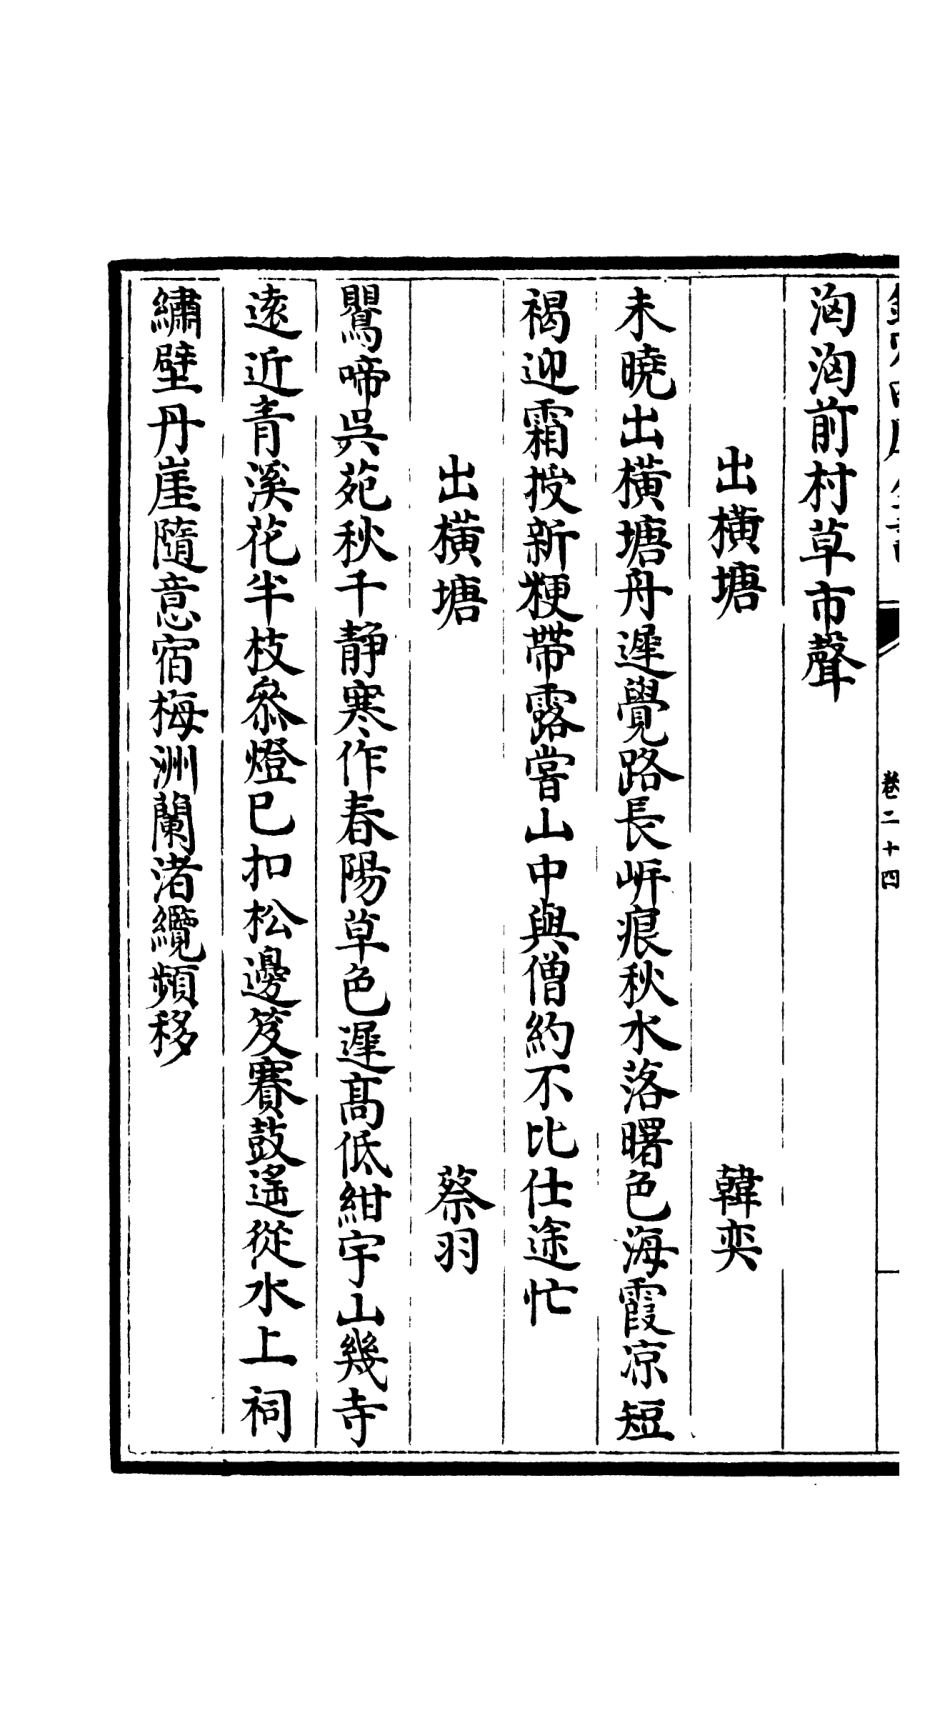 卷二十四
洶洶前村草市聲
出橫塘 韓奕
未曉出橫塘舟遲覺路長㟁痕秋水落曙色海霞凉短
褐迎霜授新粳帶露嘗山中與僧約不比仕途忙
出橫塘 蔡羽
鸎啼吳苑秋千靜寒作春陽草色遲髙低紺宇山幾寺
逺近青溪花半枝叅燈已扣松邊笈賽鼓遙從水上祠
繡壁丹崖隨意宿梅洲蘭渚纜頻移